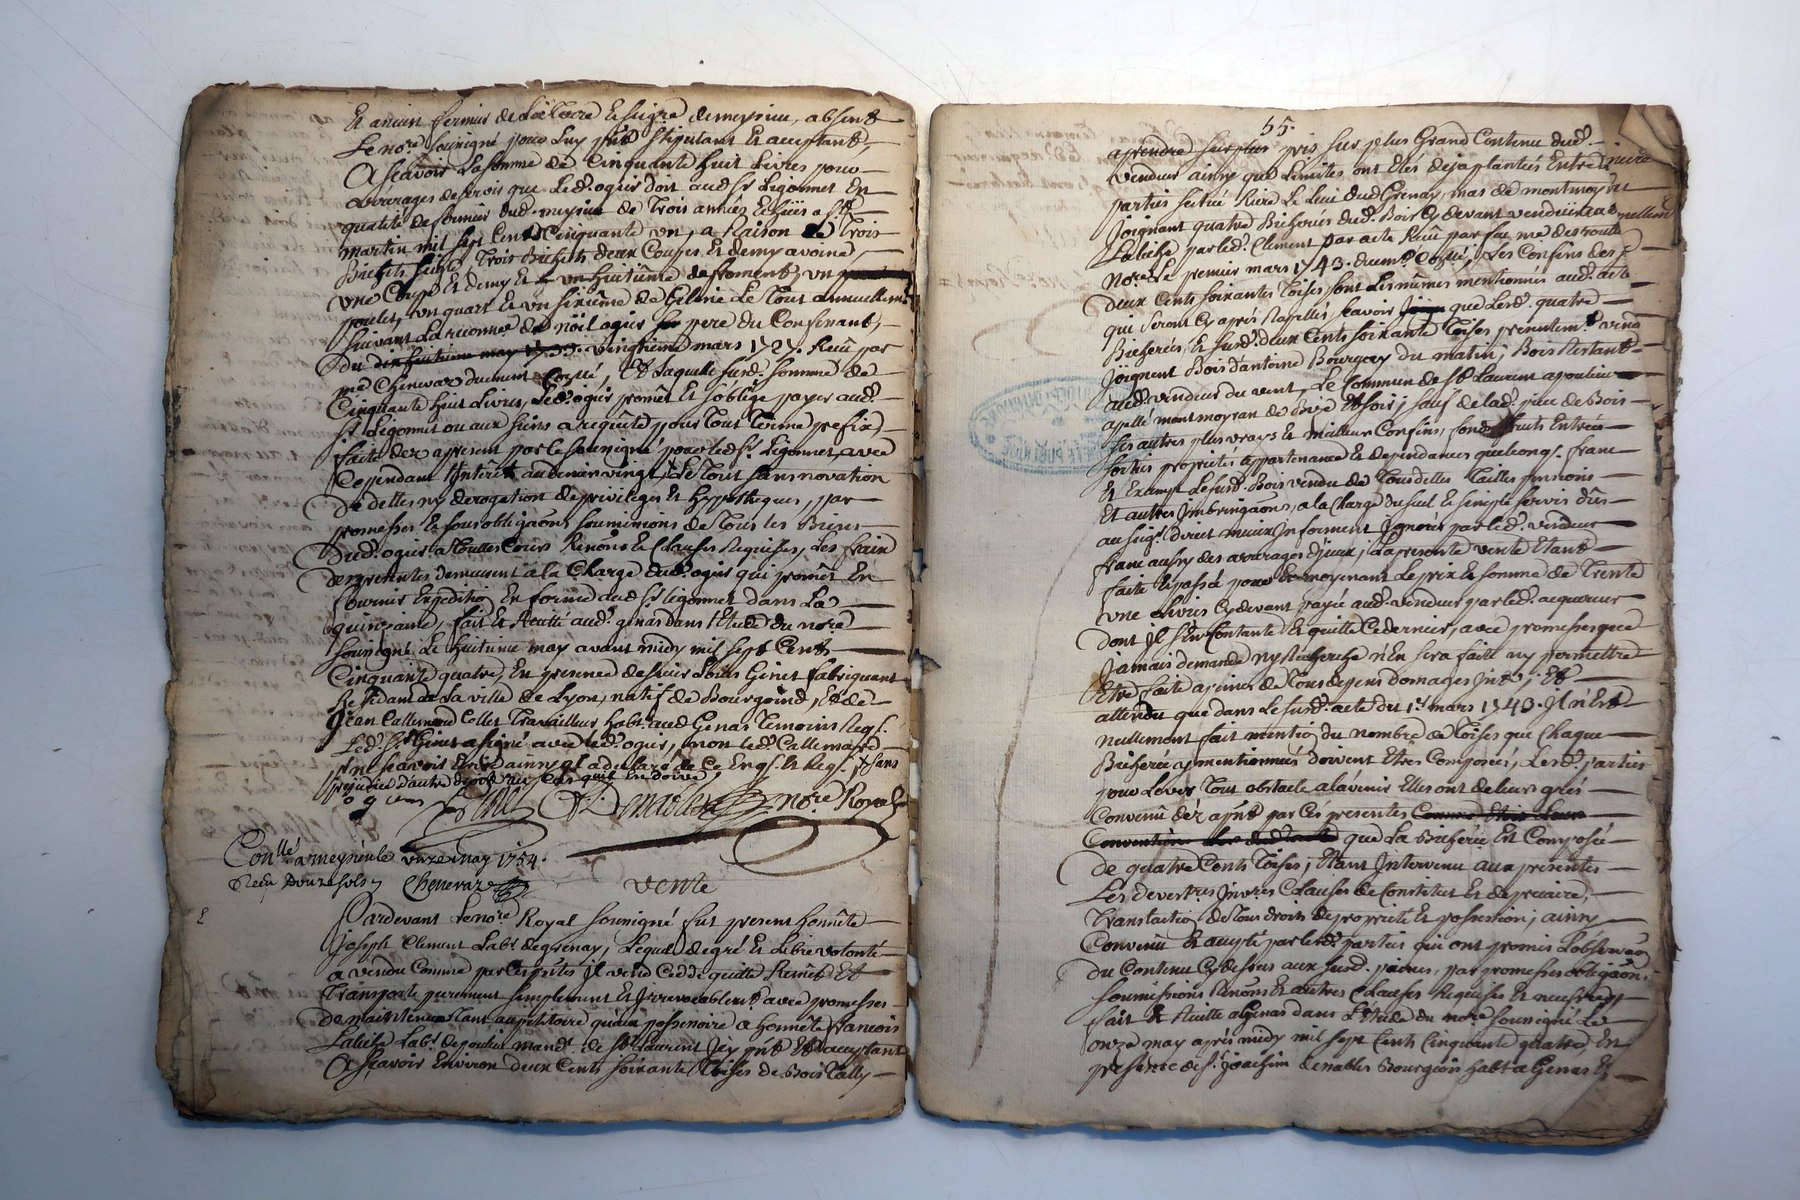 Et ancien fermier de la Terre & seigrie de meyzieu, absent
Le nore. soussigné pour luy pnt. stipulant et acceptant,
A scavoir la somme de Cinquante huit Livres pour
arrerages de servis que Led. ogier doit aud. sr. Ligonnet En
qualité de fermier dud. meyzieu de Trois années Echües a st.
martin mil sept Cent Cinquante un, a Raison de Trois
Bichets seigle Trois Bichets deux Coupes Et demy avoine,
une Coupe Et demy Et un huitième de froment, un
poulet, un quart Et un sixieme de Geline Le Tout annuellemt.
suivant La reconnce. de nöel ogier son pere du Confinant,
du dix huitieme may 1733. vingtieme mars 1727. Reçü par
me. Chenevaz duement Conllé, Et Laquelle susd. somme de
Cinquante huit Livres, Led. ogier promet Et s'oblige payer aud.
sr. Ligonnet ou aux siens a requête pour Tout Terme prefix,
faite dez a present par le soussigné pour led. sr. Ligonnet, avec
Cependant Interêt au denier vingt, Le Tout sans novation
De dettes ny derogation de privileges Et hypotheques, par
promesses Et sous obligaõns soumissions de Tous ses Biens
Dud. ogier a Touttes Cours Renõns & Clauses Requises, Les frais
des presentes demeurent a la Charge dud. ogier qui promet En
fournir Expedition En forme aud. sr. ligonnet dans La
quinzaine, fait Et Recitté aud. genas dans l'Etude du nore.
soussigné Le huitieme may avant midy mil sept Cent
Cinquante quatre, En presence de sieur Louis Ginet fabriquant
Residant a La ville de Lyon, natif de Bourgoind, Et de
Jean Callemard Collet Travailleur habt. aud. Genas Temoins Reqs.
Led. sr. Ginet a signé avec led. ogier, non led. Callemard
pr. ne scavoir Ecrire ainsy qil a declaré de Ce Enqs. & Reqs. sans
prejudice d'autre
ogier Ginet Demoles nore. Royal
Conllé a meyzieu le unze may 1754.
Reçu Douze sols Chenevaz
vente
Pardevant Le nore. Royal soussigné fut present honnête
joseph Clement Labr. de grenay, Lequel de gré Et Libre volonté
a vendu Comme par Ces pntes. jl vend Cedde quitte Remet Et
Transporte purement simplement Et Irrevocablemt. avec promesses
de maintenue Tant au petitoire qu'au possessoire a honnete francois
Labiche Labr. de poulieu mandt. de st. Laurent Jcy pnt. Et acceptant
A Scavoir Environ deux Cents soixante Toises de Bois Tally
55.
a prendre sur plus pris sur plus Grand Contenu dud.
vendeur ainsy que Limites ont Etés deja plantées Entre
parties scitué Riere Le Lieu dud. Grenay, mas de montmoyran
Joignant quatre Bicherées dud. Bois Cy devant vendües
Labiche par led. Clement par acte Reçü par feu me. destroute
Nore. Le premier mars 1743. duemt. Conllé, Les Confins des
deux Cents soixantes Toises sont Les mêmes mentionnés aud. acte
qui seront Cy aprés Rapellés, scavoir que Lesd. quatre
Bicherées, Et susd. deux Cents soixante Toises presentemt. vend.
Joignent Bois d'antoine Bourgey du matin; Bois Restant
aud. vendeur du vent, Le Commun de st. Laurent a poulieu
apellé montmoyran de Bize Et soir; sauf de lad. piece de Bois
ses autres plus vrays Et meilleurs Confins, fonds fruits Entrées
sorties proprietés appartenances Et dependances quelconqs. franc
Et Exempt Le susd. Bois vendu de Tous dettes Tailles pensions
Et autres Imbringaõns, a la Charge du seul & simple servis dûs
au seigr. direct mieux Informent Ignoré par led. vendeur
franc aussy des arrerages d'jceux, La presente vente Etant
faite Et passée pour Et moyenant Le prix Et somme de Trente
une Livres Cy devant payée aud. vendeur par led. acquereur
dont jl s'En Contante & quitte Ce dernier, avec promesses que
Jamais demande ny Recherche n'En sera faitte ny permettre
Etre faite a peines de Tous depens domages Int. ; Et
attendu que dans Le susd. acte du 1er. mars 1743. jl n'Est
nullement fait mention du nombre de Toises que Chaque
Bicherée y mentionnées doivent Etres Composées, Lesd. parties
pour Lever Tout obstacle a l'avenir Elles ont de leurs grés
Convenü déz a pnt. par Ces presentes Comme
Convention que La Bicherée Est Composée
de quatre Cents Toises; Etant Intervenu aux presentes
Les devestres Invres. Clauses de Constitut Et de precaire,
Translation de Tous droits de proprieté Et possession; ainsy
Convenu Et accepté par lesd. parties qui ont promis L'observaõn
du Contenu Cy dessus aux susd. peines, par promesses obligaõns
soumissions Renõns Et autres Clauses Requises Et necessres.
fait Et Recitté a genas dans L'Etude du nore. soussigné Le
onze may aprés midy mil sept Cents Cinquante quatre, En
presence de sr. joachim denables Bourgeois habt. a Genas Et